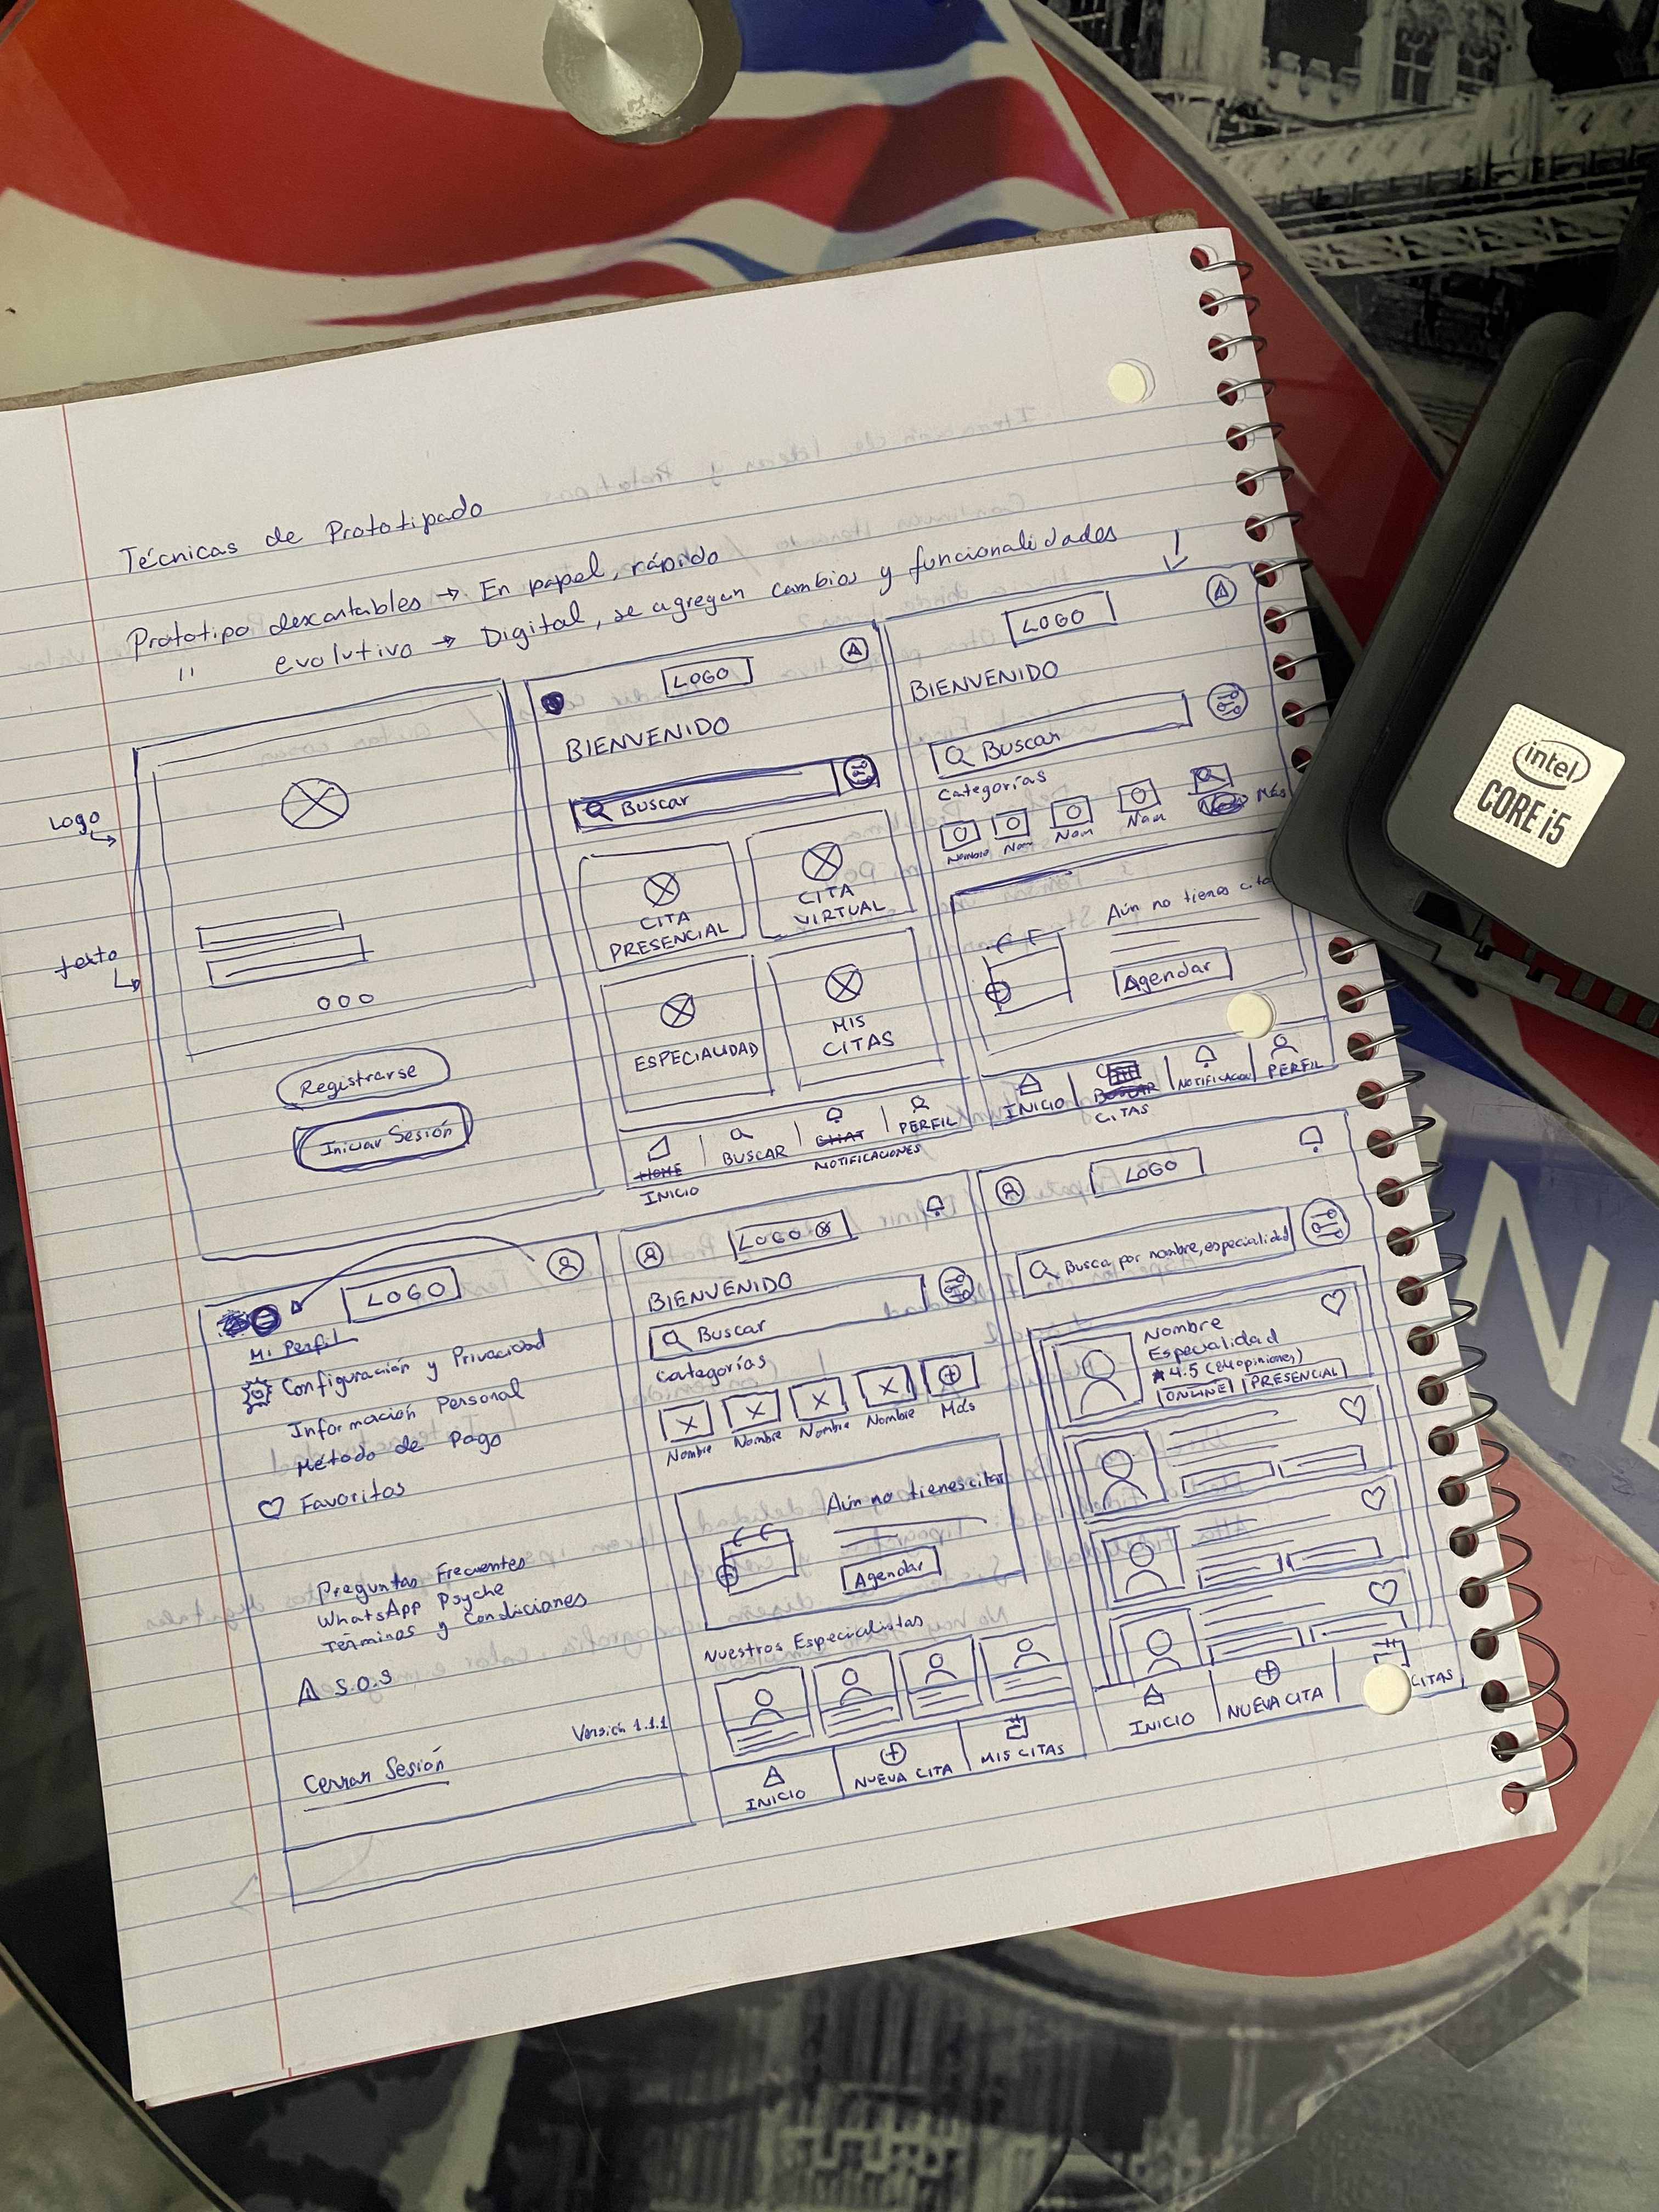 Técnicas de Prototipado
Prototipo descartables → En papel, rápido
" evolutivo → Digital, se agregan cambios y funcionalidades
Logo
texto
Registrarse
Iniciar Sesión
LOGO
BIENVENIDO
Buscar
CITA
PRESENCIAL
CITA
VIRTUAL
ESPECIALIDAD
MIS
CITAS
HOME
INICIO
BUSCAR
CHAT
NOTIFICACIONES
PERFIL
LOGO
BIENVENIDO
Buscar
Categorías
Nombre
Nom
Nom
Nom
Más
Aún no tienes cita
Agendar
INICIO
BUSCAR
CITAS
NOTIFICACION
PERFIL
LOGO
Mi Perfil
Configuración y Privacidad
Información Personal
Método de Pago
Favoritos
Preguntas Frecuentes
WhatsApp Psyche
Términos y Condiciones
S.O.S
Versión 1.1.1
Cerrar Sesión
LOGO
BIENVENIDO
Buscar
Categorías
Nombre
Nombre
Nombre
Nombre
Más
Aún no tienes citas
Agendar
Nuestros Especialistas
INICIO
NUEVA CITA
MIS CITAS
LOGO
Busca por nombre, especialidad
Nombre
Especialidad
★4.5 (84 opiniones)
ONLINE
PRESENCIAL
INICIO
NUEVA CITA
CITAS
intel
CORE i5